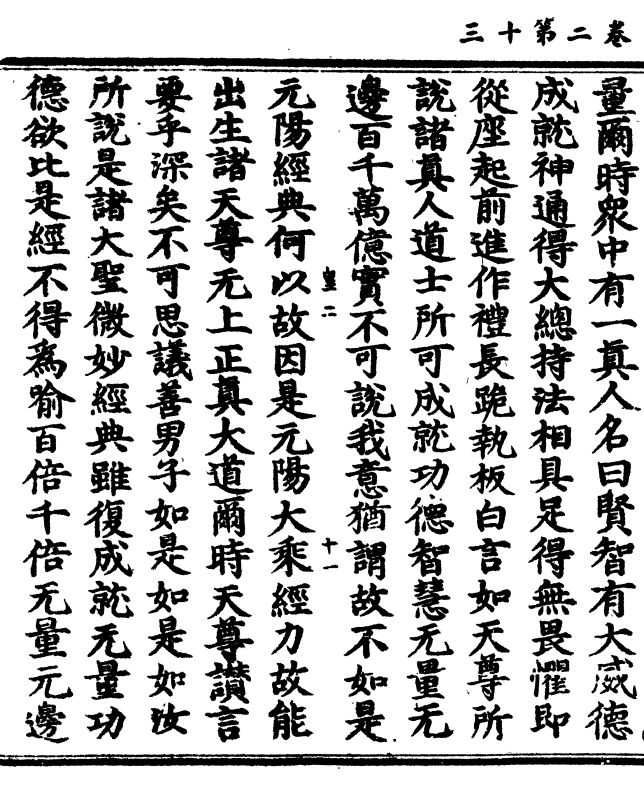 三十第二卷
量爾時衆中有一眞人名曰賢智有大威德
成就神通得大總持法相具足得無畏懼即
從座起前進作禮長跪執板白言如天尊所
說諸眞人道士所可成就功德智慧无量无
邊百千萬億實不可說我意猶謂故不如是
皇二
十一
元陽經典何以故因是元陽大乘經力故能
出生諸天尊无上正眞大道爾時天尊讃言
要乎深矣不可思議善男子如是如是如汝
所說是諸大聖微妙經典雖復成就无量功
德欲比是經不得爲喻百倍千倍无量元邊